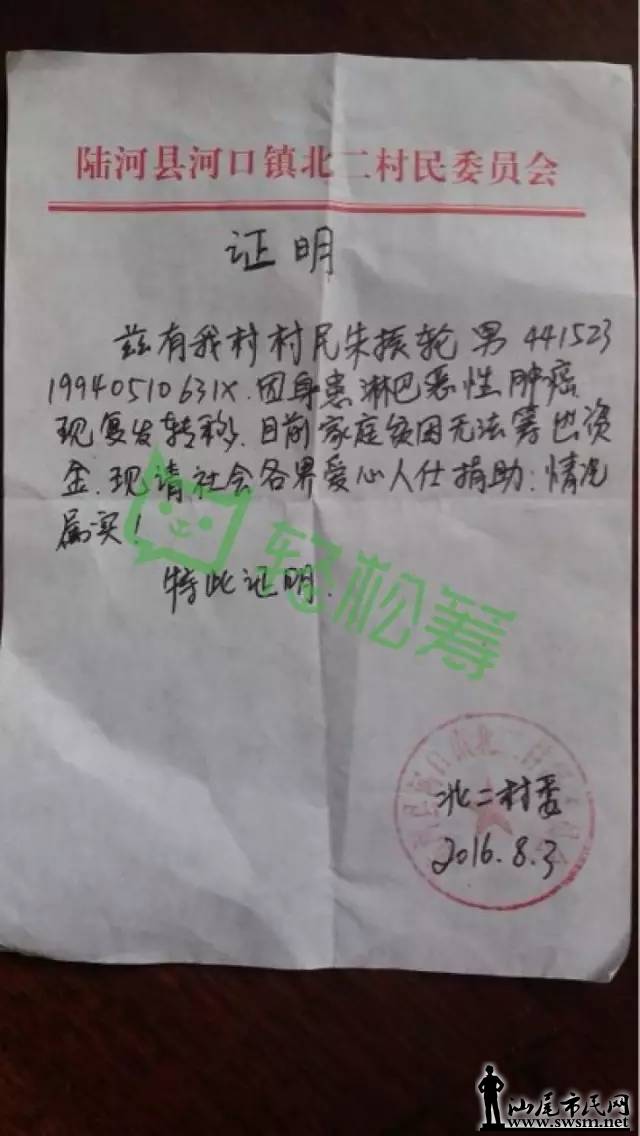 陆河县河口镇北二村民委员会
证明
兹有我村村民朱振轮男441523
19940510631X.因身患淋巴恶性肿癌
现复发转移.目前家庭贫困无法筹出资
金.现请社会各界爱心人仕捐助:情况
属实!
特此证明.
轻松筹
北二村委
2016.8.3
汕尾市民网
www.swsm.net